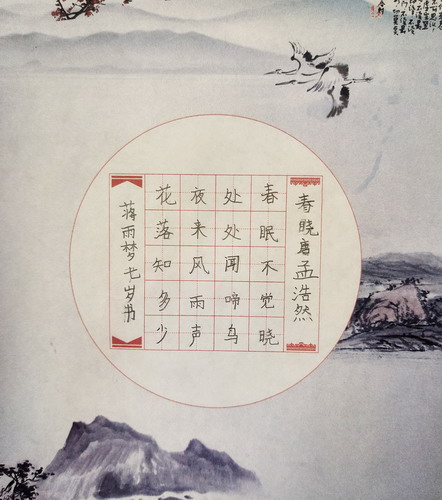 春晓唐孟浩然
春眠不觉晓
处处闻啼鸟
夜来风雨声
花落知多少
蒋雨梦七岁书